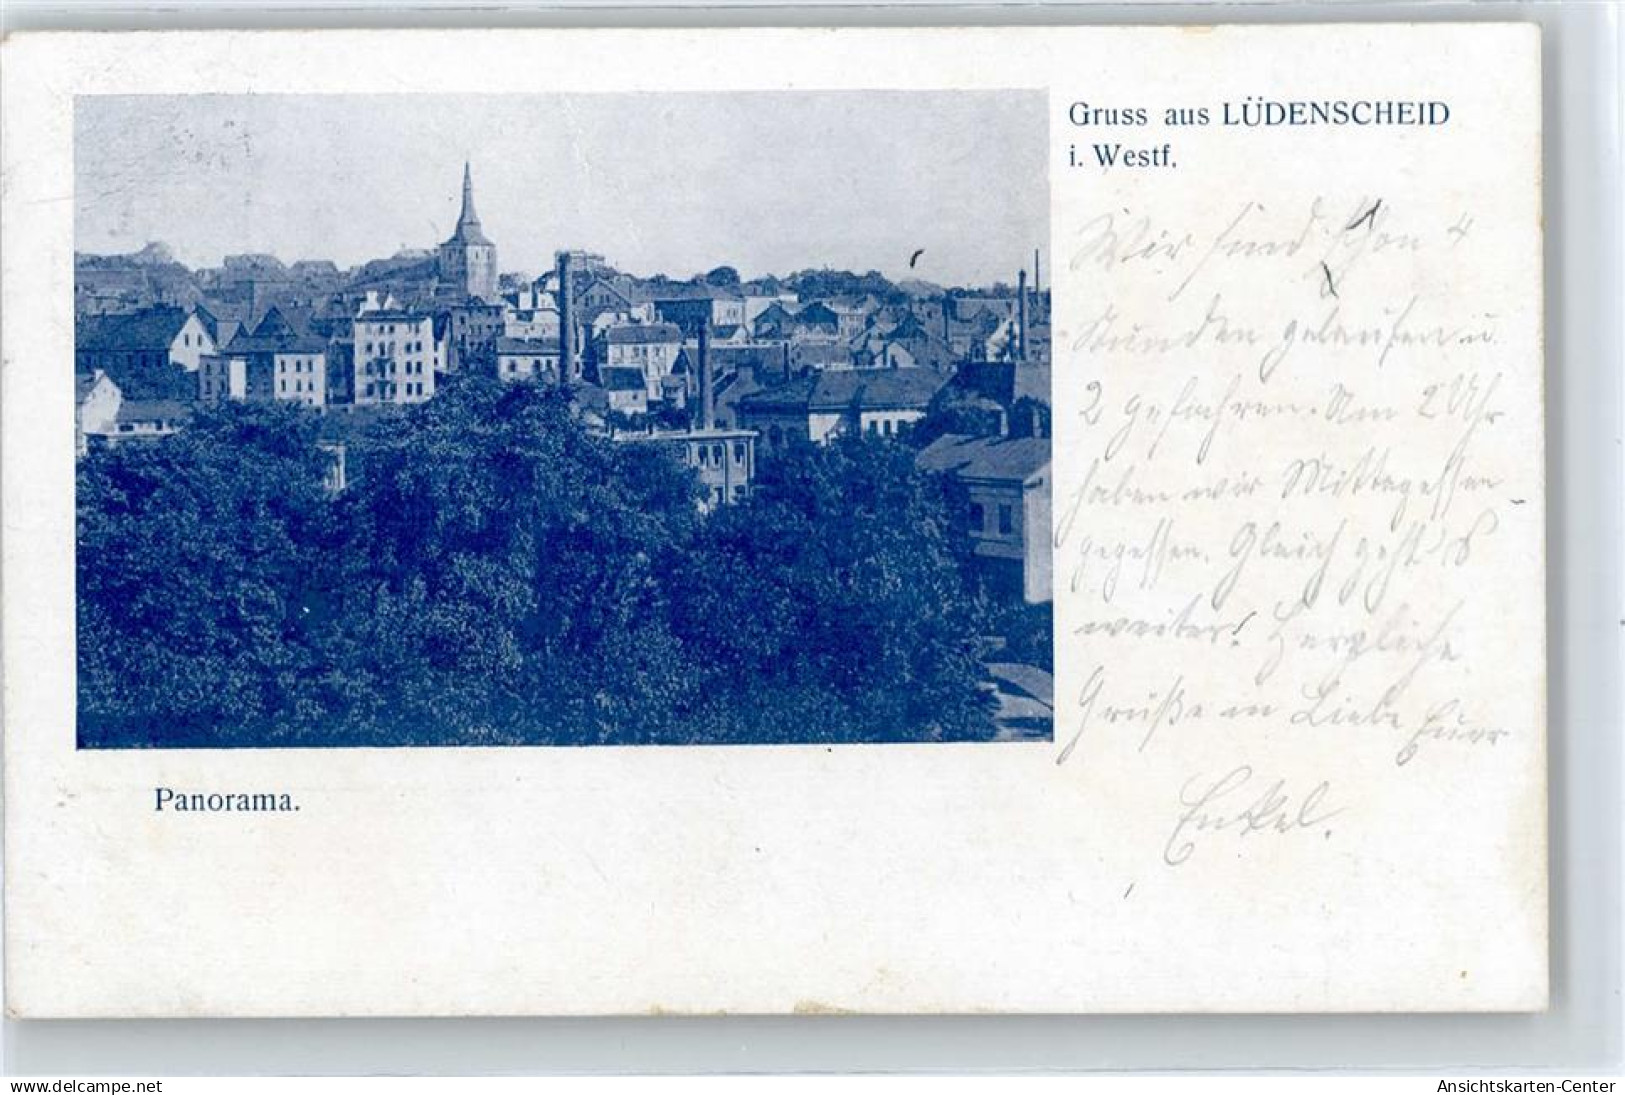 Gruss aus LÜDENSCHEID
i. Westf.
Wir sind schon 4
Stunden gelaufen u.
2 gefahren. Um 2 Uhr
haben wir Mittagessen
gegessen. Gleich geht's
weiter! Herzliche
Grüße in Liebe Euer
Enkel.
Panorama.
www.delcampe.net
Ansichtskarten-Center